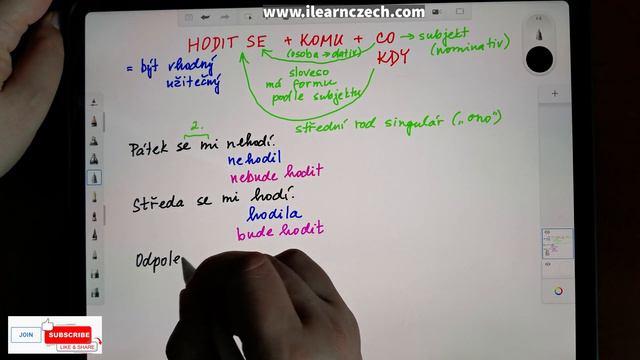 www.ilearnczech.com
HODIT SE + KOMU + CO → subjekt
(osoba → dativ)
(nominativ)
KDY
= být vhodný
užitečný
sloveso
má formu
podle subjektu
střední rod singulár ("ono")
2.
Pátek se mi nehodí.
nehodil
nebude hodit
Středa se mi hodí.
hodila
bude hodit
Odpole
JOIN
SUBSCRIBE
LIKE & SHARE